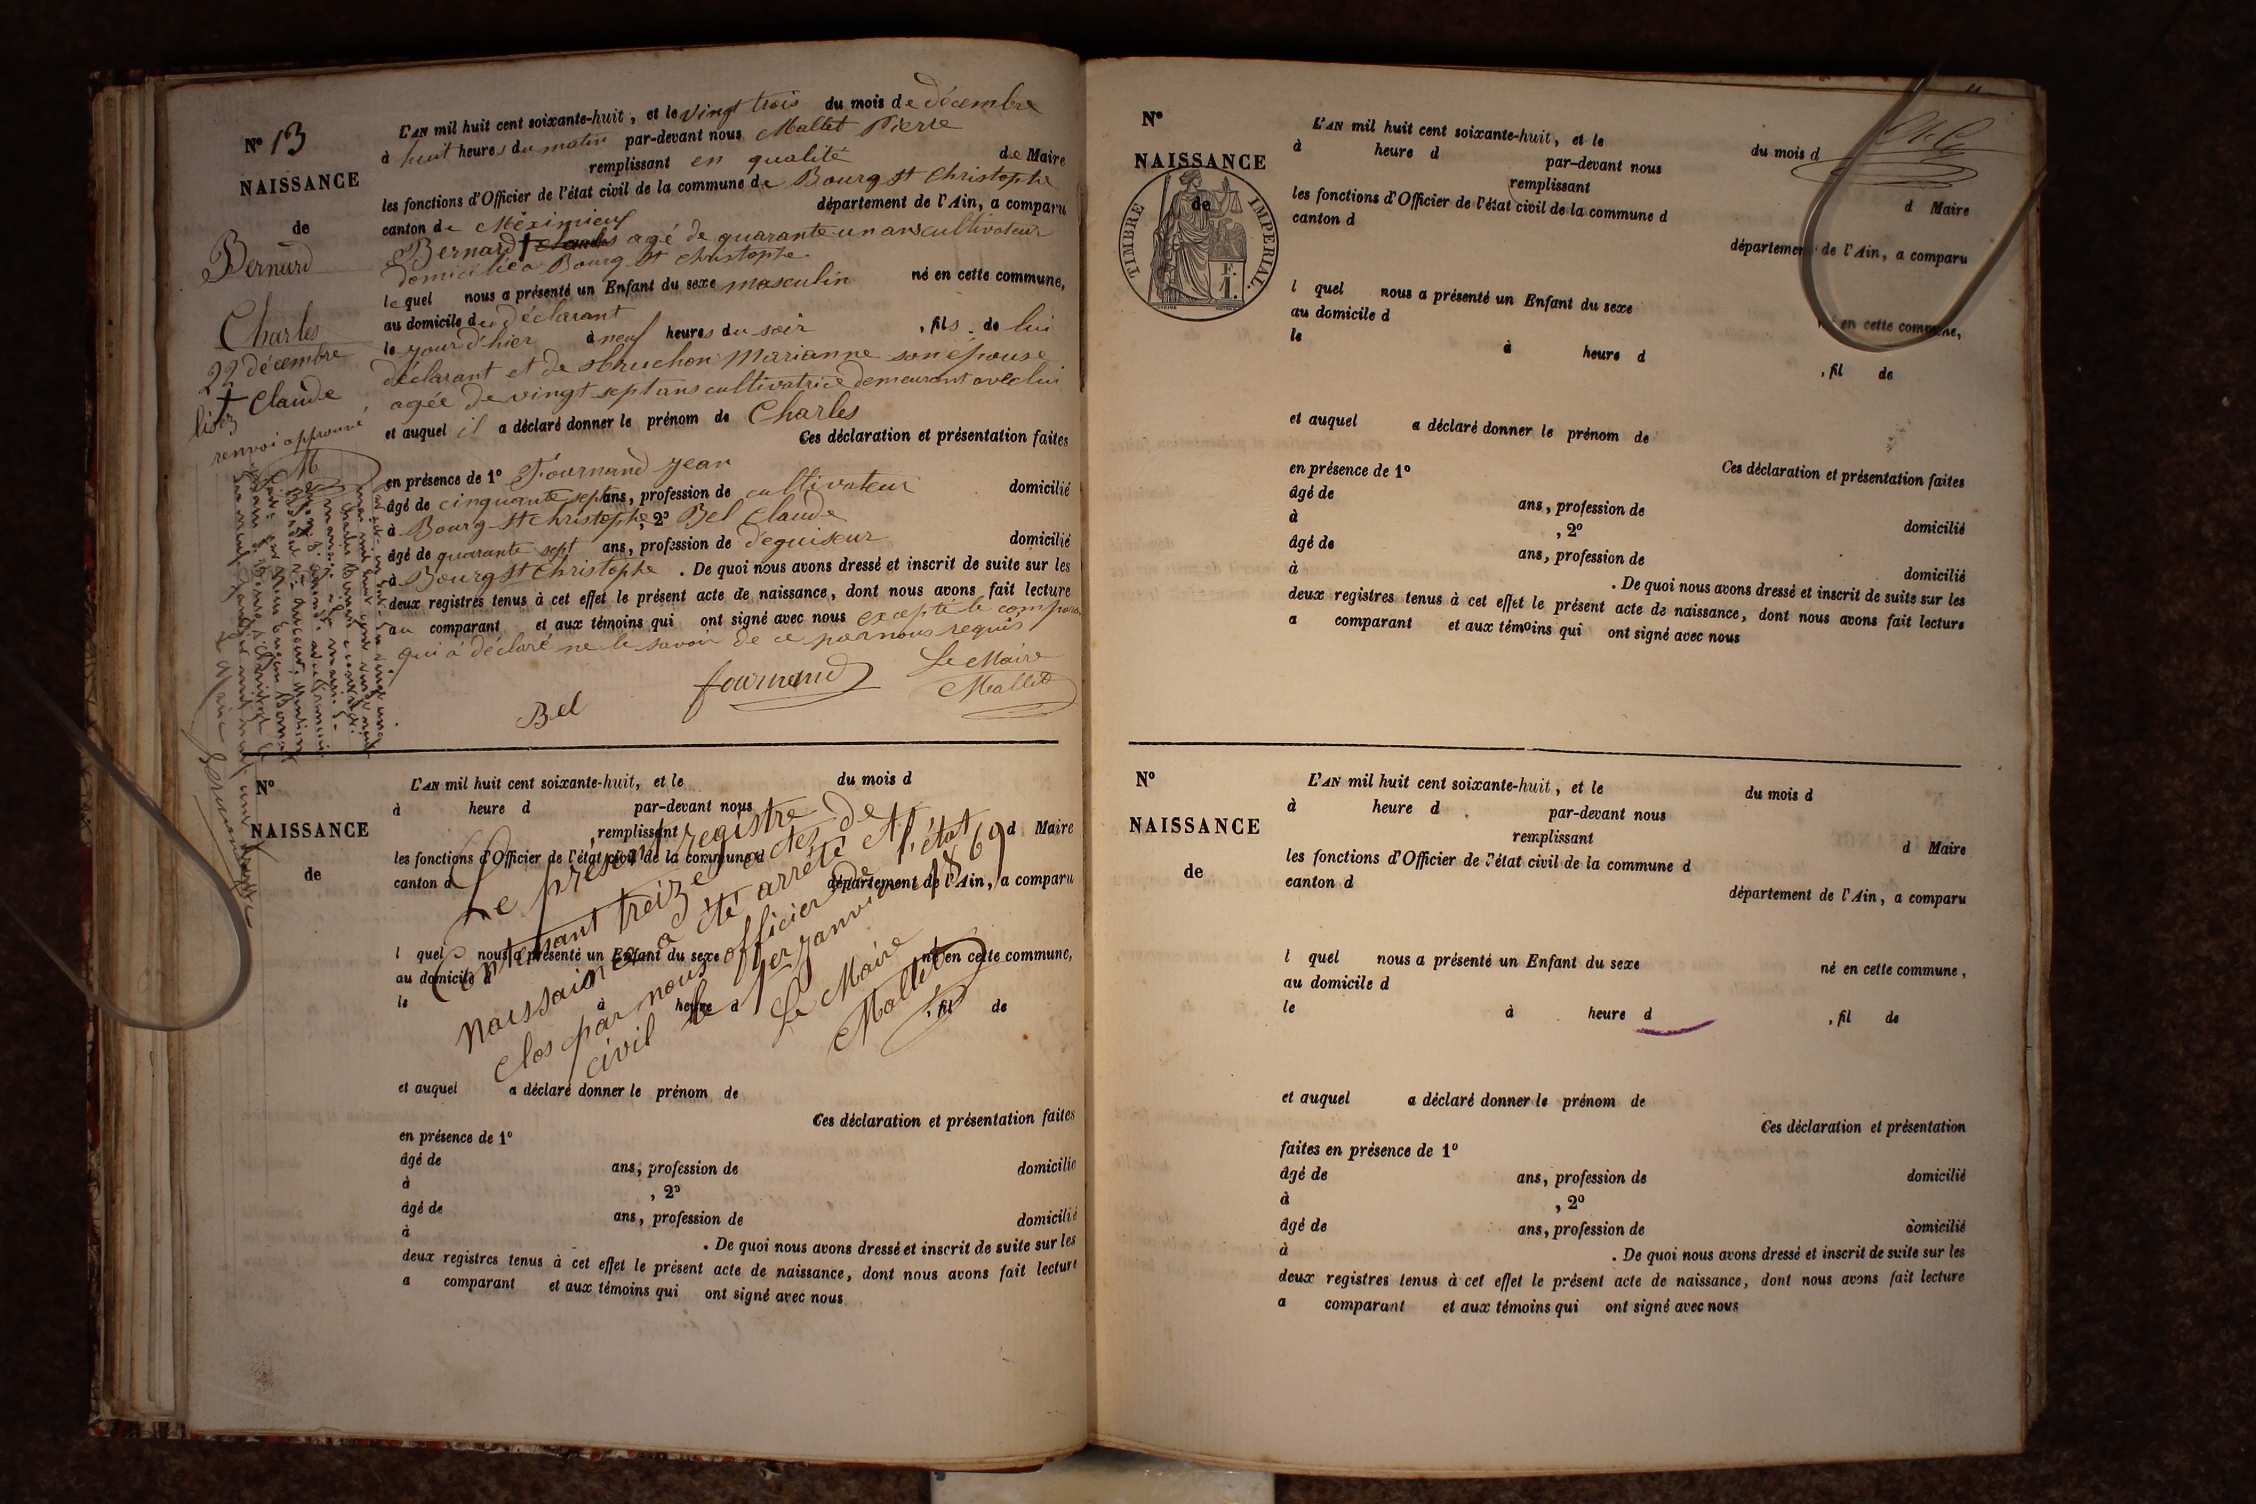 N° 13
NAISSANCE
de
Bernard
Charles
22 décembre
† Claude
lisez
renvoi approuvé
M
L'AN mil huit cent soixante-huit, et le vingt trois du mois de décembre
à huit heures du matin par-devant nous Mallet Pierre
remplissant en qualité de Maire
les fonctions d'Officier de l'état civil de la commune de Bourg St Christophe
canton de Méximieux département de l'Ain, a comparu
Bernard † agé de quarante un ans cultivateur
domicilié a Bourg St Christophe
lequel nous a présenté un Enfant du sexe masculin né en cette commune,
au domicile du déclarant
le jour d'hier à neuf heures du soir, fils de lui
déclarant et de Marianne son épouse
agée de vingt sept ans cultivatrice demeurant avec lui
et auquel il a déclaré donner le prénom de Charles
Ces déclaration et présentation faites
en présence de 1° Fournand Jean
âgé de cinquante sept ans, profession de cultivateur domicilié
à Bourg St Christophe, 2° Bel Claude
âgé de quarante sept ans, profession de domicilié
à Bourg St Christophe. De quoi nous avons dressé et inscrit de suite sur les
deux registres tenus à cet effet le présent acte de naissance, dont nous avons fait lecture
au comparant et aux témoins qui ont signé avec nous excepté le
qui a déclaré ne le savoir de ce par nous requis
Bel fournand Le Maire
Mallet
N°
NAISSANCE
de
L'AN mil huit cent soixante-huit, et le du mois d
à heure d par-devant nous
remplissant d Maire
les fonctions d'Officier de l'état civil de la commune d
canton d département de l'Ain, a comparu
l quel nous a présenté un Enfant du sexe né en cette commune,
au domicile d
le à heure d , fil de
Le présent registre
contenant treize actes de
naissance a été arrêté et
clos par nous officier de l'état
civil le 1er janvier 1869
Le Maire
Mallet
et auquel a déclaré donner le prénom de
Ces déclaration et présentation faites
en présence de 1°
âgé de ans, profession de domicilié
à , 2°
âgé de ans, profession de domicilié
à . De quoi nous avons dressé et inscrit de suite sur les
deux registres tenus à cet effet le présent acte de naissance, dont nous avons fait lecture
a comparant et aux témoins qui ont signé avec nous
N°
NAISSANCE
de
TIMBRE IMPERIAL
F.
1.
L'AN mil huit cent soixante-huit, et le du mois d
à heure d par-devant nous
remplissant d Maire
les fonctions d'Officier de l'état civil de la commune d
canton d département de l'Ain, a comparu
l quel nous a présenté un Enfant du sexe né en cette commune,
au domicile d
le à heure d , fil de
et auquel a déclaré donner le prénom de
Ces déclaration et présentation faites
en présence de 1°
âgé de ans, profession de domicilié
à , 2°
âgé de ans, profession de domicilié
à . De quoi nous avons dressé et inscrit de suite sur les
deux registres tenus à cet effet le présent acte de naissance, dont nous avons fait lecture
a comparant et aux témoins qui ont signé avec nous
N°
NAISSANCE
de
L'AN mil huit cent soixante-huit, et le du mois d
à heure d par-devant nous
remplissant d Maire
les fonctions d'Officier de l'état civil de la commune d
canton d département de l'Ain, a comparu
l quel nous a présenté un Enfant du sexe né en cette commune,
au domicile d
le à heure d , fil de
et auquel a déclaré donner le prénom de
Ces déclaration et présentation
faites en présence de 1°
âgé de ans, profession de domicilié
à , 2°
âgé de ans, profession de domicilié
à . De quoi nous avons dressé et inscrit de suite sur les
deux registres tenus à cet effet le présent acte de naissance, dont nous avons fait lecture
a comparant et aux témoins qui ont signé avec nous